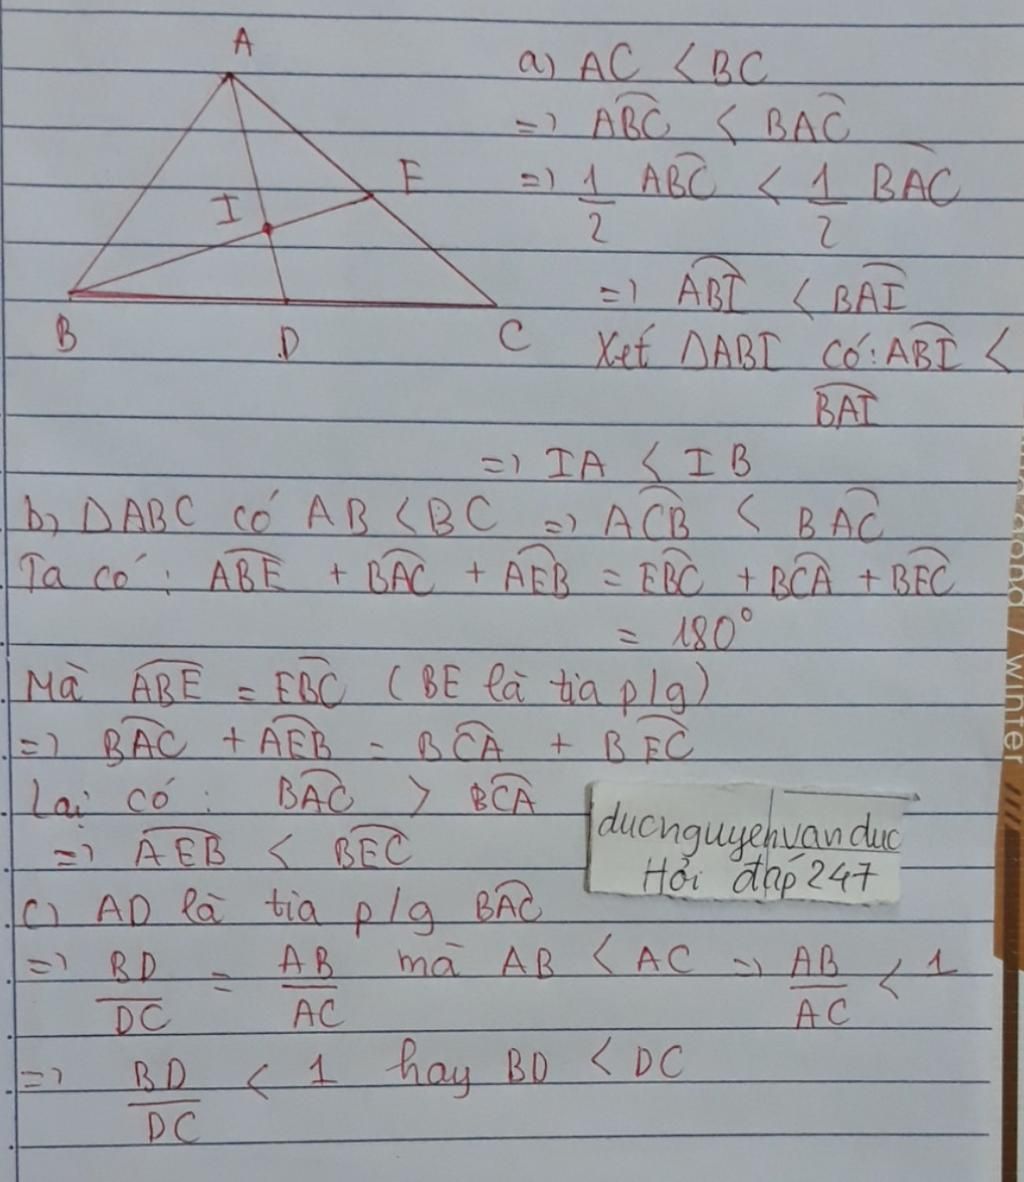 A
E
I
B
D
C
a) AC < BC
=> ABC^ < BAC^
=> 1/2 ABC^ < 1/2 BAC^
=> ABI^ < BAI^
Xét ΔABI có: ABI^ <
BAI^
=> IA < IB
b, ΔABC có AB < BC => ACB^ < BAC^
Ta có: ABE^ + BAC^ + AEB^ = EBC^ + BCA^ + BEC^
= 180°
Mà ABE^ = EBC^ (BE là tia p/g)
=> BAC^ + AEB^ = BCA^ + BEC^
Lại có: BAC^ > BCA^
=> AEB^ < BEC^
ducnguyenvanduc
Hỏi đáp 247
c) AD là tia p/g BAC^
=> BD/DC = AB/AC mà AB < AC => AB/AC < 1
=> BD/DC < 1 hay BD < DC
winter